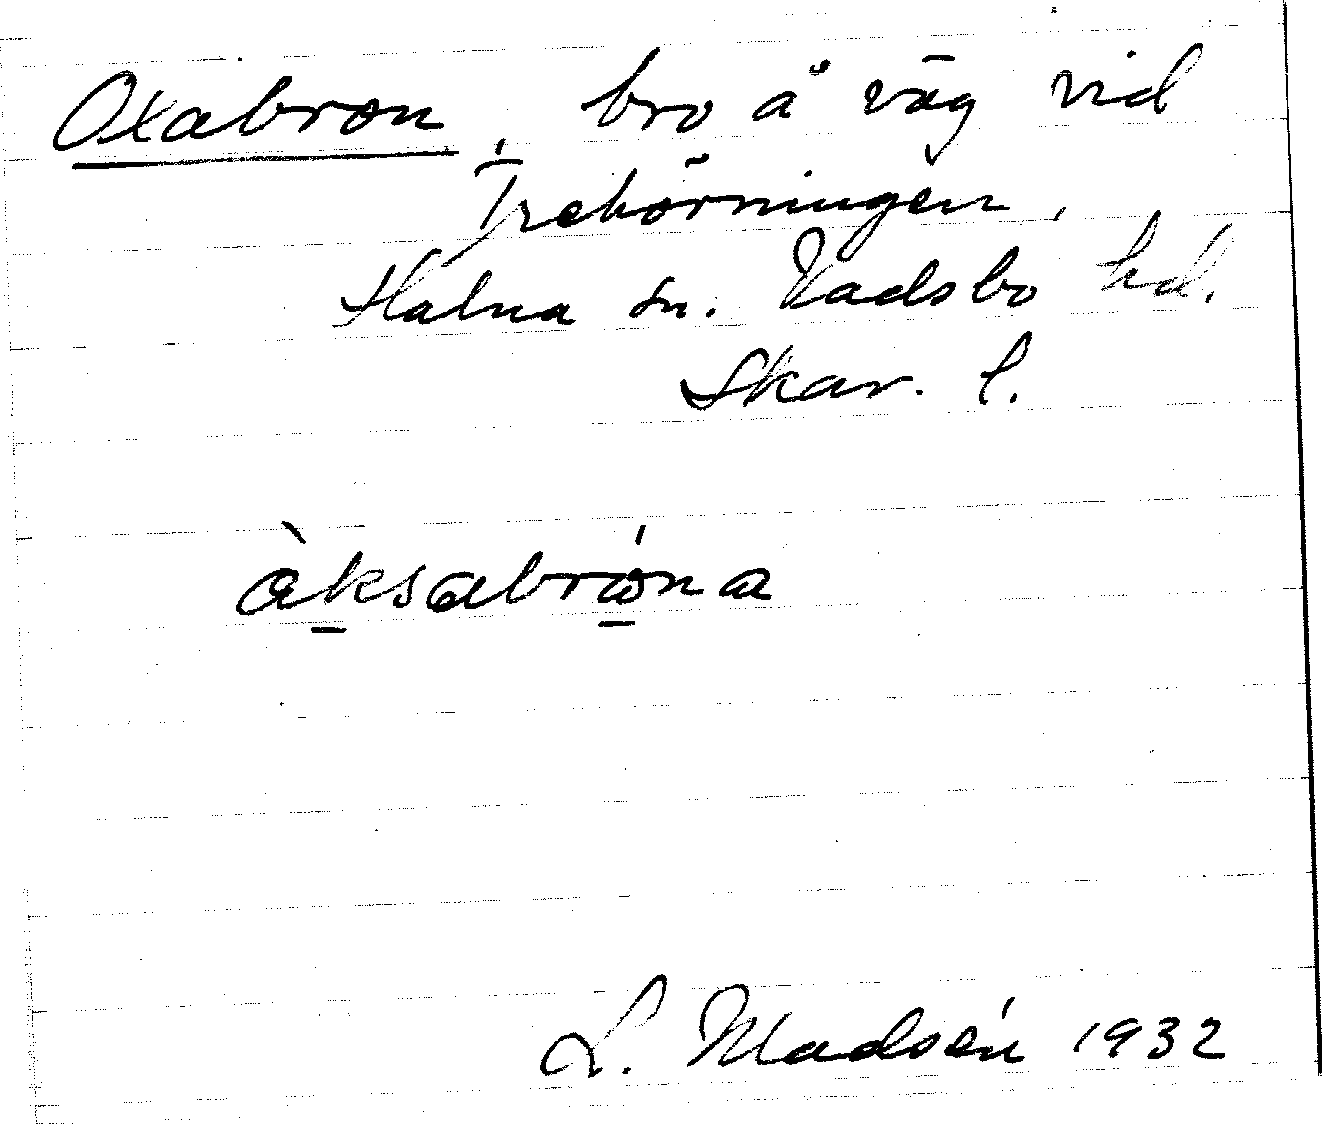 Oxabron, bro å väg vid
Trehörningen,
Halna sn. Vadsbo hd.
Skar. l.
àksabróna
L. Madsén 1932